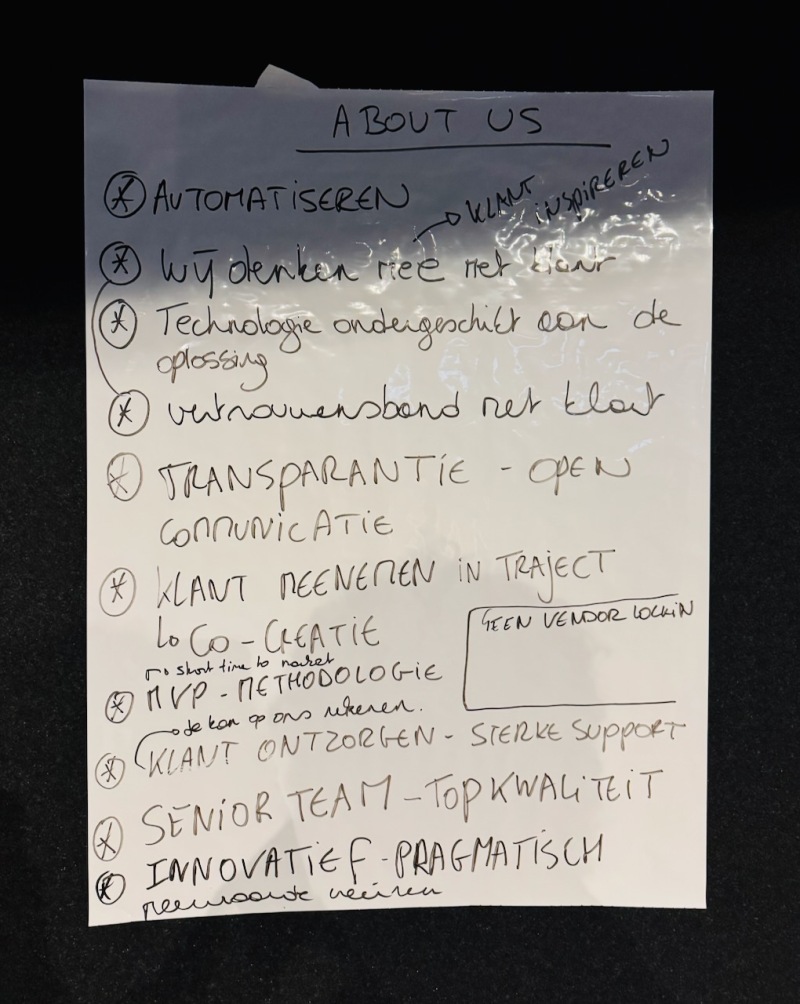 ABOUT US
AUTOMATISEREN
KLANT INSPIREREN
Wij denken mee met klant
Technologie ondergeschikt aan de
oplossing
vertrouwensband met klant
TRANSPARANTIE - OPEN
COMMUNICATIE
KLANT MEENEMEN IN TRAJECT
CO-CREATIE
GEEN VENDOR LOCKIN
short time to market
MVP - METHODOLOGIE
je kan op ons rekenen.
KLANT ONTZORGEN - STERKE SUPPORT
SENIOR TEAM - TOPKWALITEIT
INNOVATIEF - PRAGMATISCH
meerwaarde